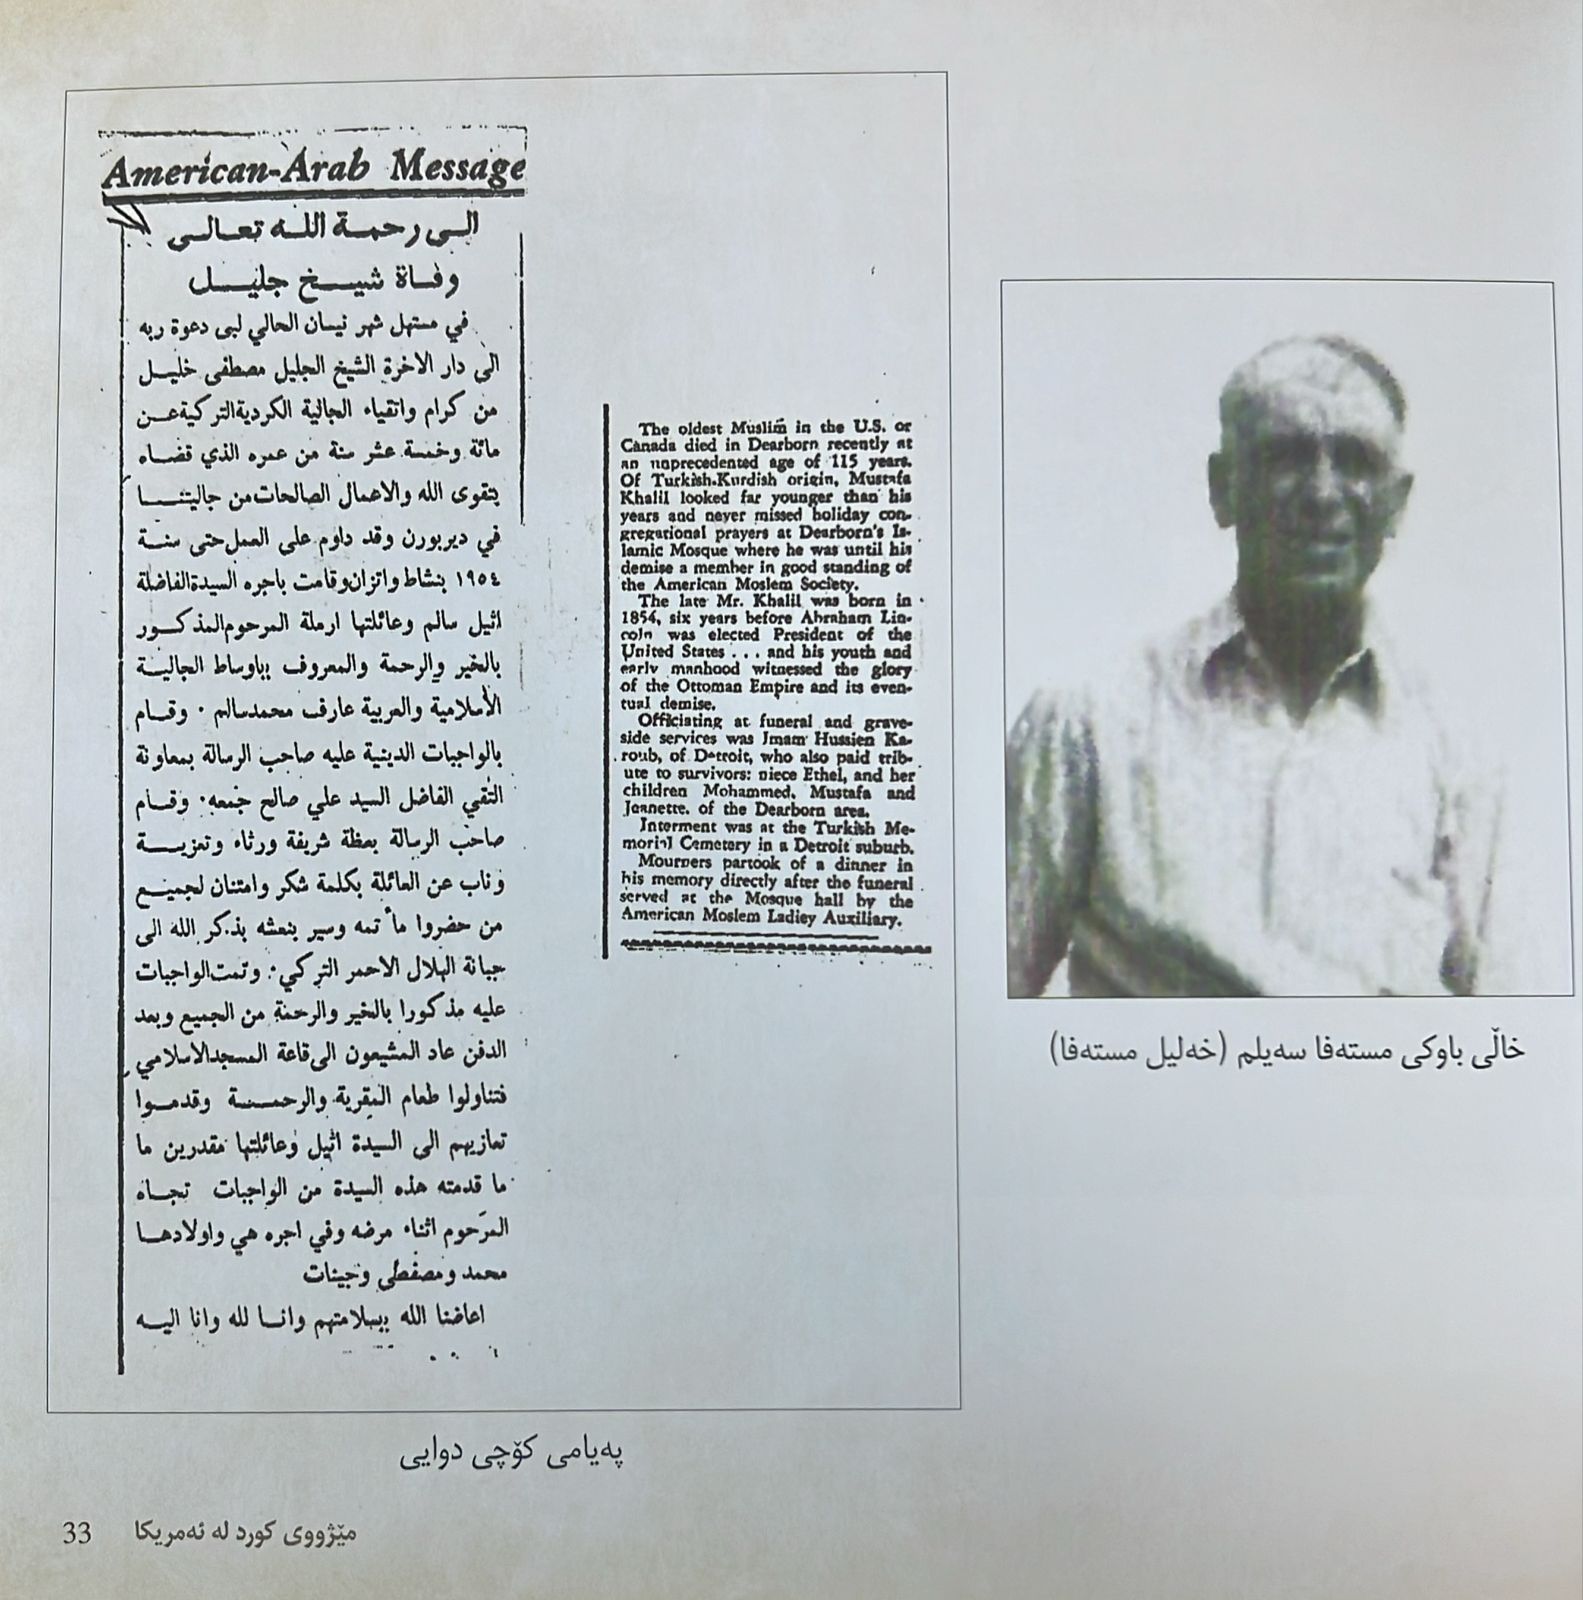 American-Arab Message
الى رحمة الله تعالى
وفاة شيخ جليل
في مستهل شهر نيسان الحالي لبى دعوة ربه
الى دار الاخرة الشيخ الجليل مصطفى خليل
من كرام واتقياء الجالية الكردية التركية عن
مائة وخمسة عشر سنة من عمره الذي قضاه
بتقوى الله والاعمال الصالحات من جاليتنا
في ديربورن وقد داوم على العمل حتى سنة
١٩٥٤ بنشاط واتزان وقامت باجره السيدة الفاضلة
اثيل سالم وعائلتها ارملة المرحوم المذكور
بالخير والرحمة والمعروف بباوساط الجالية
الأسلامية والعربية عارف محمد سالم . وقام
بالواجبات الدينية عليه صاحب الرسالة بمعاونة
التقي الفاضل السيد علي صالح جمعه . وقام
صاحب الرسالة بعظة شريفة ورثاء وتعزية
وناب عن العائلة بكلمة شكر وامتنان لجميع
من حضروا مأتمه وسير بنعشه بذكر الله الى
جبانة الهلال الاحمر التركي . وتمت الواجبات
عليه مذكورا بالخير والرحمة من الجميع وبعد
الدفن عاد المشيعون الى قاعة المسجد الاسلامي
فتناولوا طعام المقرية والرحمة وقدموا
تعازيهم الى السيدة اثيل وعائلتها مقدرين ما
ما قدمته هذه السيدة من الواجبات تجاه
المرحوم اثناء مرضه وفي اجره هي واولادها
محمد ومصفطى وجينات
اعاضنا الله ببسلامتهم وانا لله وانا اليه
The oldest Muslim in the U.S. or
Canada died in Dearborn recently at
an unprecedented age of 115 years.
Of Turkish-Kurdish origin, Mustafa
Khalil looked far younger than his
years and never missed holiday con-
gregational prayers at Dearborn's Is-
lamic Mosque where he was until his
demise a member in good standing of
the American Moslem Society.
The late Mr. Khalil was born in
1854, six years before Abraham Lin-
coln was elected President of the
United States . . . and his youth and
early manhood witnessed the glory
of the Ottoman Empire and its even-
tual demise.
Officiating at funeral and grave-
side services was Imam Hussien Ka-
roub, of Detroit, who also paid trib-
ute to survivors: niece Ethel, and her
children Mohammed, Mustafa and
Jeanette, of the Dearborn area.
Interment was at the Turkish Me-
morial Cemetery in a Detroit suburb.
Mourners partook of a dinner in
his memory directly after the funeral
served at the Mosque hall by the
American Moslem Ladiey Auxiliary.
خاڵی باوکی مستەفا سەیلم (خەلیل مستەفا)
پەیامی کۆچی دوایی
33 مێژووی کورد لە ئەمریکا